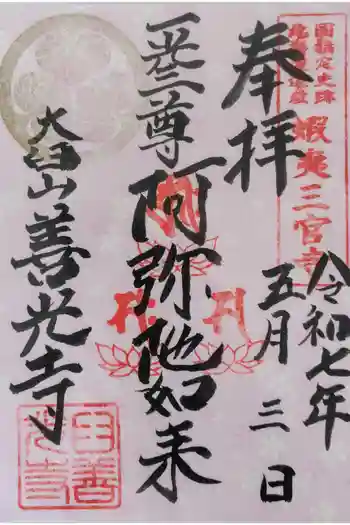 国指定史跡
蝦夷三官寺
奉拝
令和七年
五月三日
一光三尊
阿弥陀如来
大臼山善光寺